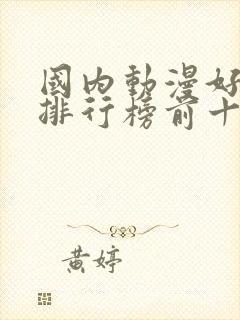 國內動漫好
排行榜前十
黃婷